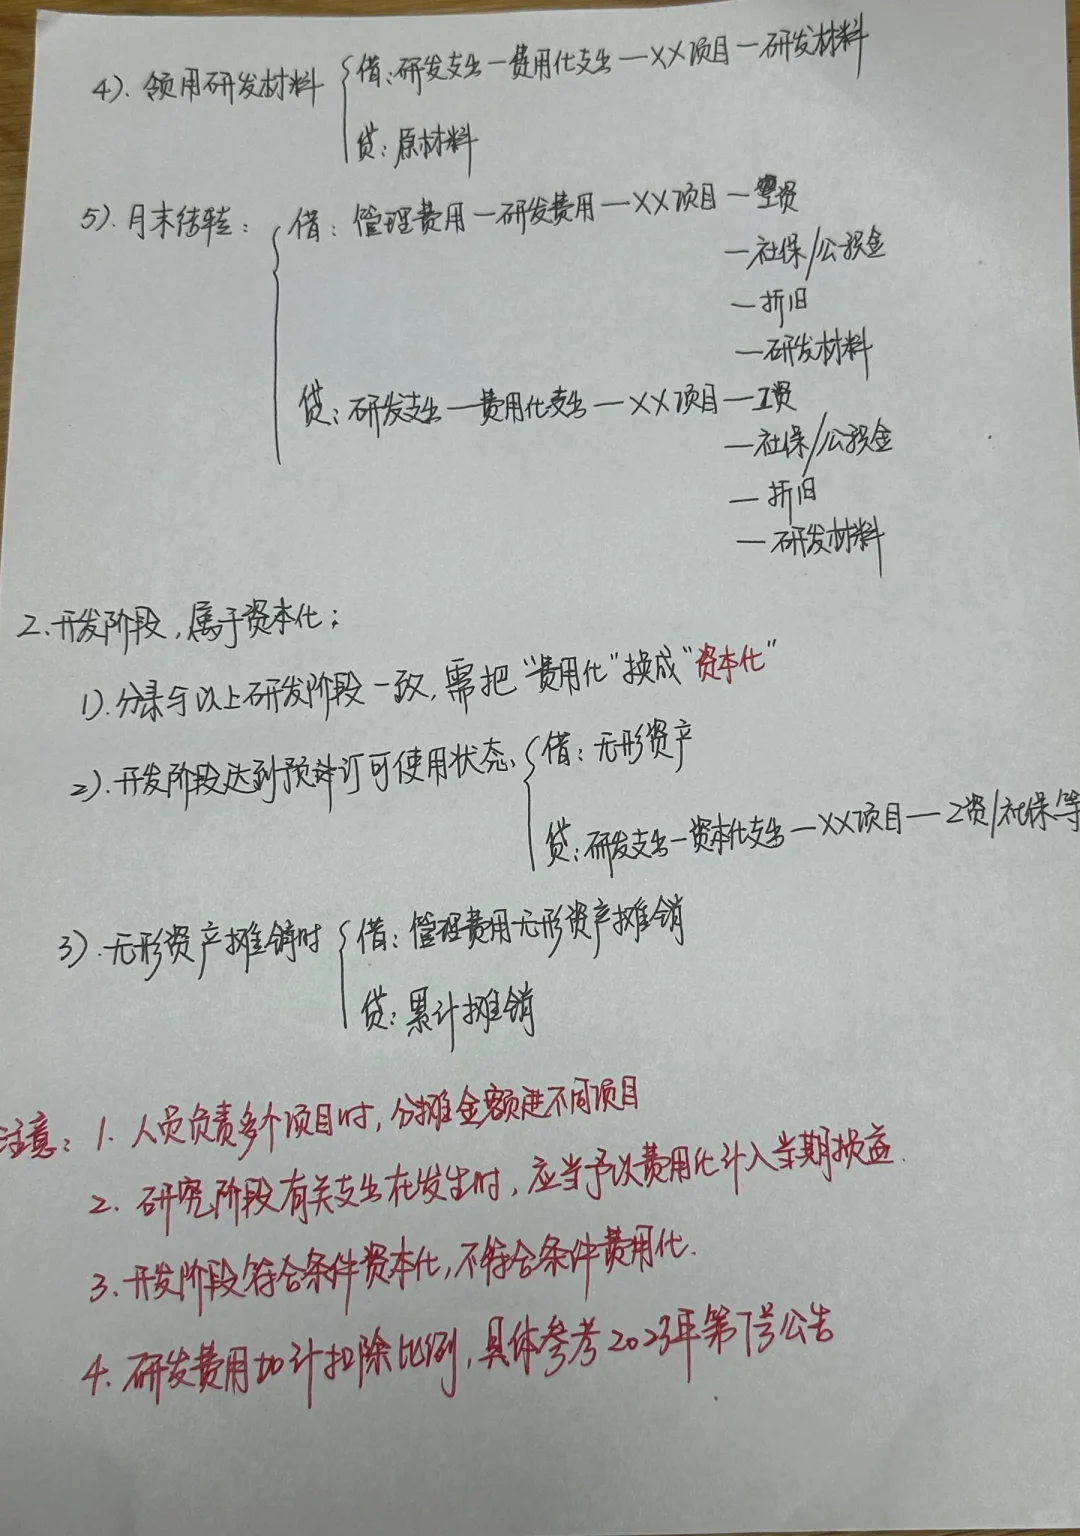 4).领用研发材料 借:研发支出—费用化支出—XX项目—研发材料
贷:原材料
5).月末结转: 借:管理费用—研发费用—XX项目—工资
—社保/公积金
—折旧
—研发材料
贷:研发支出—费用化支出—XX项目—工资
—社保/公积金
—折旧
—研发材料
2.开发阶段,属于资本化;
1).分录与以上研发阶段一致,需把“费用化”换成“资本化”
2).开发阶段达到预计可使用状态、 借:无形资产
贷:研发支出—资本化支出—XX项目—工资/社保等
3).无形资产摊销时 借:管理费用无形资产摊销
贷:累计摊销
注意:1.人员负责多个项目时,分摊金额进不同项目
2.研究阶段有关支出在发生时,应当予以费用化计入当期损益.
3.开发阶段符合条件资本化,不符合条件费用化.
4.研发费用加计扣除比例,具体参考2023年第7号公告